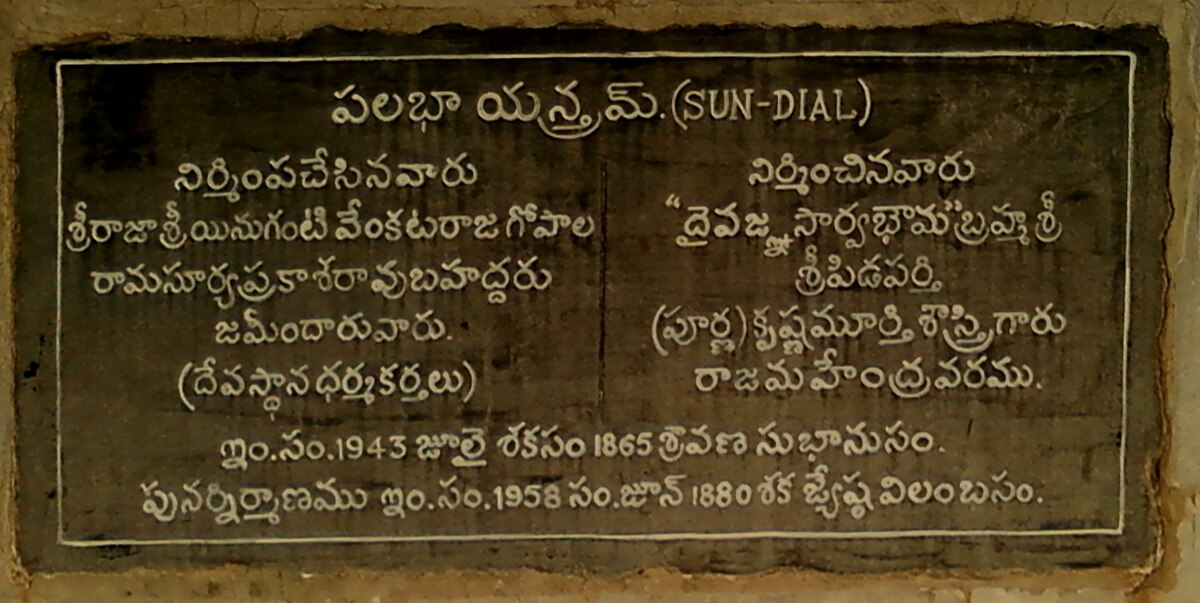 పలభా యన్త్రమ్.(SUN-DIAL)
నిర్మింపచేసినవారు
శ్రీరాజా శ్రీ యినుగంటి వేంకటరాజ గోపాల
రామసూర్యప్రకాశరావుబహద్దరు
జమీందారువారు.
(దేవస్థానధర్మకర్తలు)
నిర్మించినవారు
"దైవజ్ఞ సార్వభౌమ"బ్రహ్మశ్రీ
శ్రీపిడపర్తి
(పూర్ణ)కృష్ణమూర్తి శాస్త్రిగారు
రాజమహేంద్రవరము.
ఇం.సం.1943 జూలై శకసం 1865 శ్రావణ సుభానుసం.
పునర్నిర్మాణము ఇం.సం.1958 సం.జూన్ 1880 శక జ్యేష్ఠ విలంబసం.